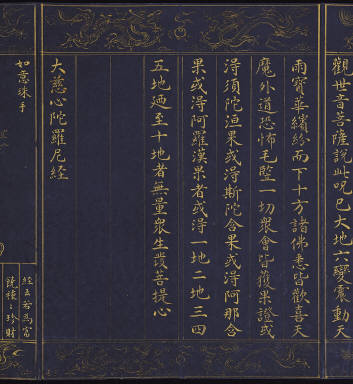 觀世音菩薩說此呪已大地六變震動天
雨寶華繽紛而下十方諸佛悉皆歡喜天
魔外道恐怖毛竪一切衆會皆獲果證或
淂須陀洹果或淂斯陀含果或淂阿那含
果或淂阿羅漢果者或淂一地二地三四
五地廼至十地者無量衆生發菩提心
大慈心陀羅尼經
如意珠手
經云若為富
饒種〻珍財